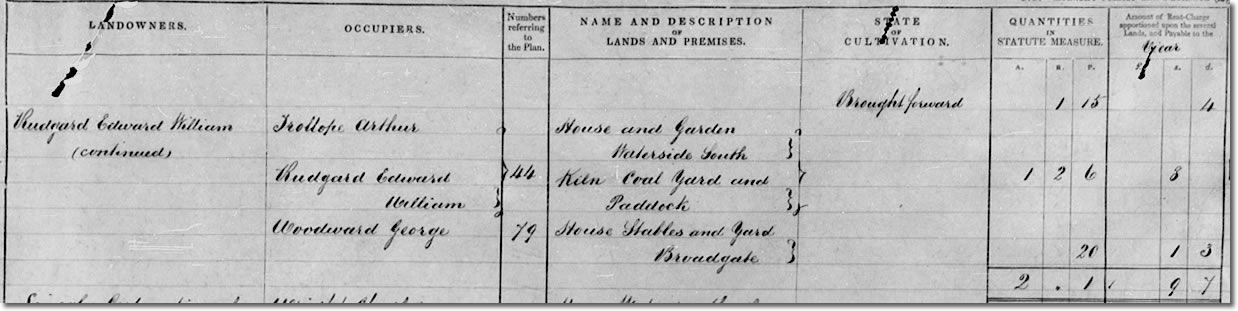 LANDOWNERS.
OCCUPIERS.
Numbers
referring
to the
Plan.
NAME AND DESCRIPTION
OF
LANDS AND PREMISES.
STATE
OF
CULTIVATION.
QUANTITIES
IN
STATUTE MEASURE.
A. R. P.
Amount of Rent-Charge
apportioned upon the several
Lands, and Payable to the
£ s. d.
Brought forward 1 15 4
Rudgard Edward William Trollope Arthur House and Garden
(continued) Waterside South
Rudgard Edward 44 Kiln Coal Yard and 1 2 6 8
William Paddock
Woodward George 79 House Stables and Yard
Broadgate 20 1 3
2 . 1 9 7